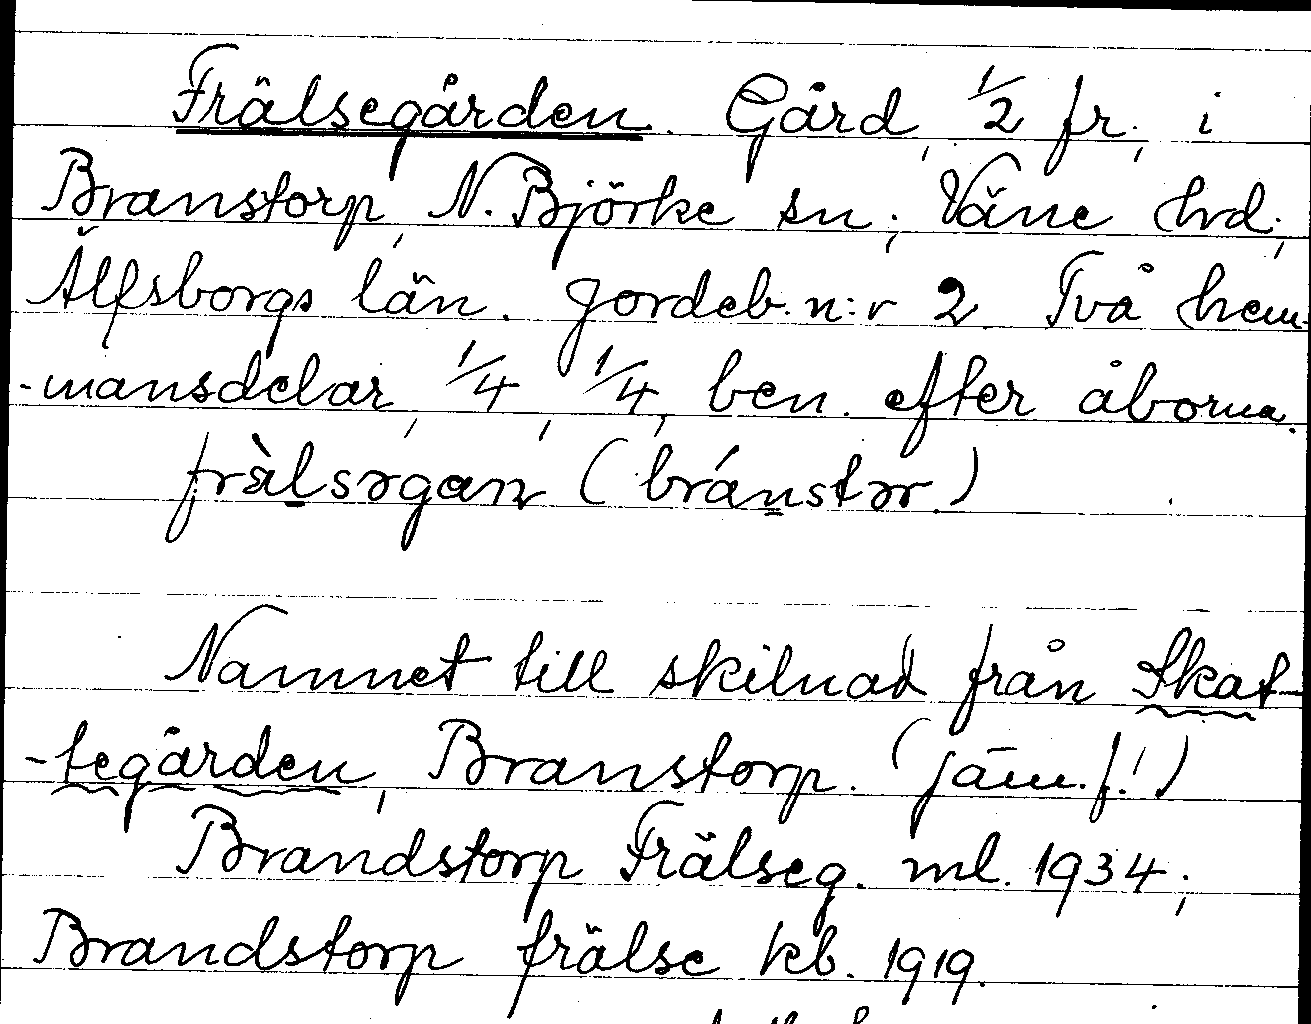 Frälsegården. Gård, 1/2 fr., i
Branstorp, N. Björke sn.; Väne hrd,
Älfsborgs län. Jordeb. n:r 2. Två hem-
-mansdelar, 1/4, 1/4, ben. efter åborna.
fràlsəgan (bránstər.)
Namnet till skilnad från Skat-
-tegården, Branstorp. (jäm.f.!)
Brandstorp Frälseg. ml. 1934;
Brandstorp frälse kb. 1919.